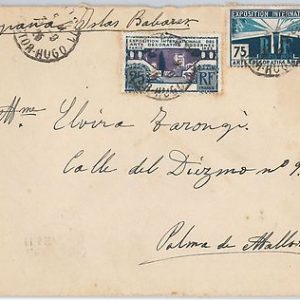 España Islas Baleares
EXPOSITION INTERNATIONALE DES
ARTS DÉCORATIFS MODERNES
25 RF
EXPOSITION INTERNAT
75
ARTS DÉCORATIFS M
OR-HUGO
Mme Elvira Tarongi
Calle del Diezmo nº 9
Palma de Mallor